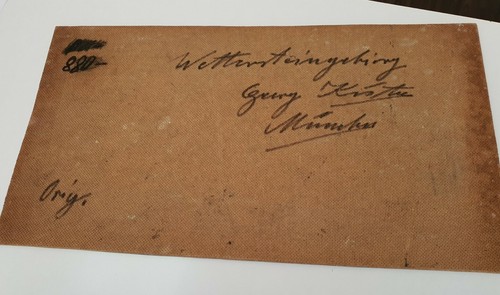 880.-
Wettersteingebirg
Georg
München
Orig.